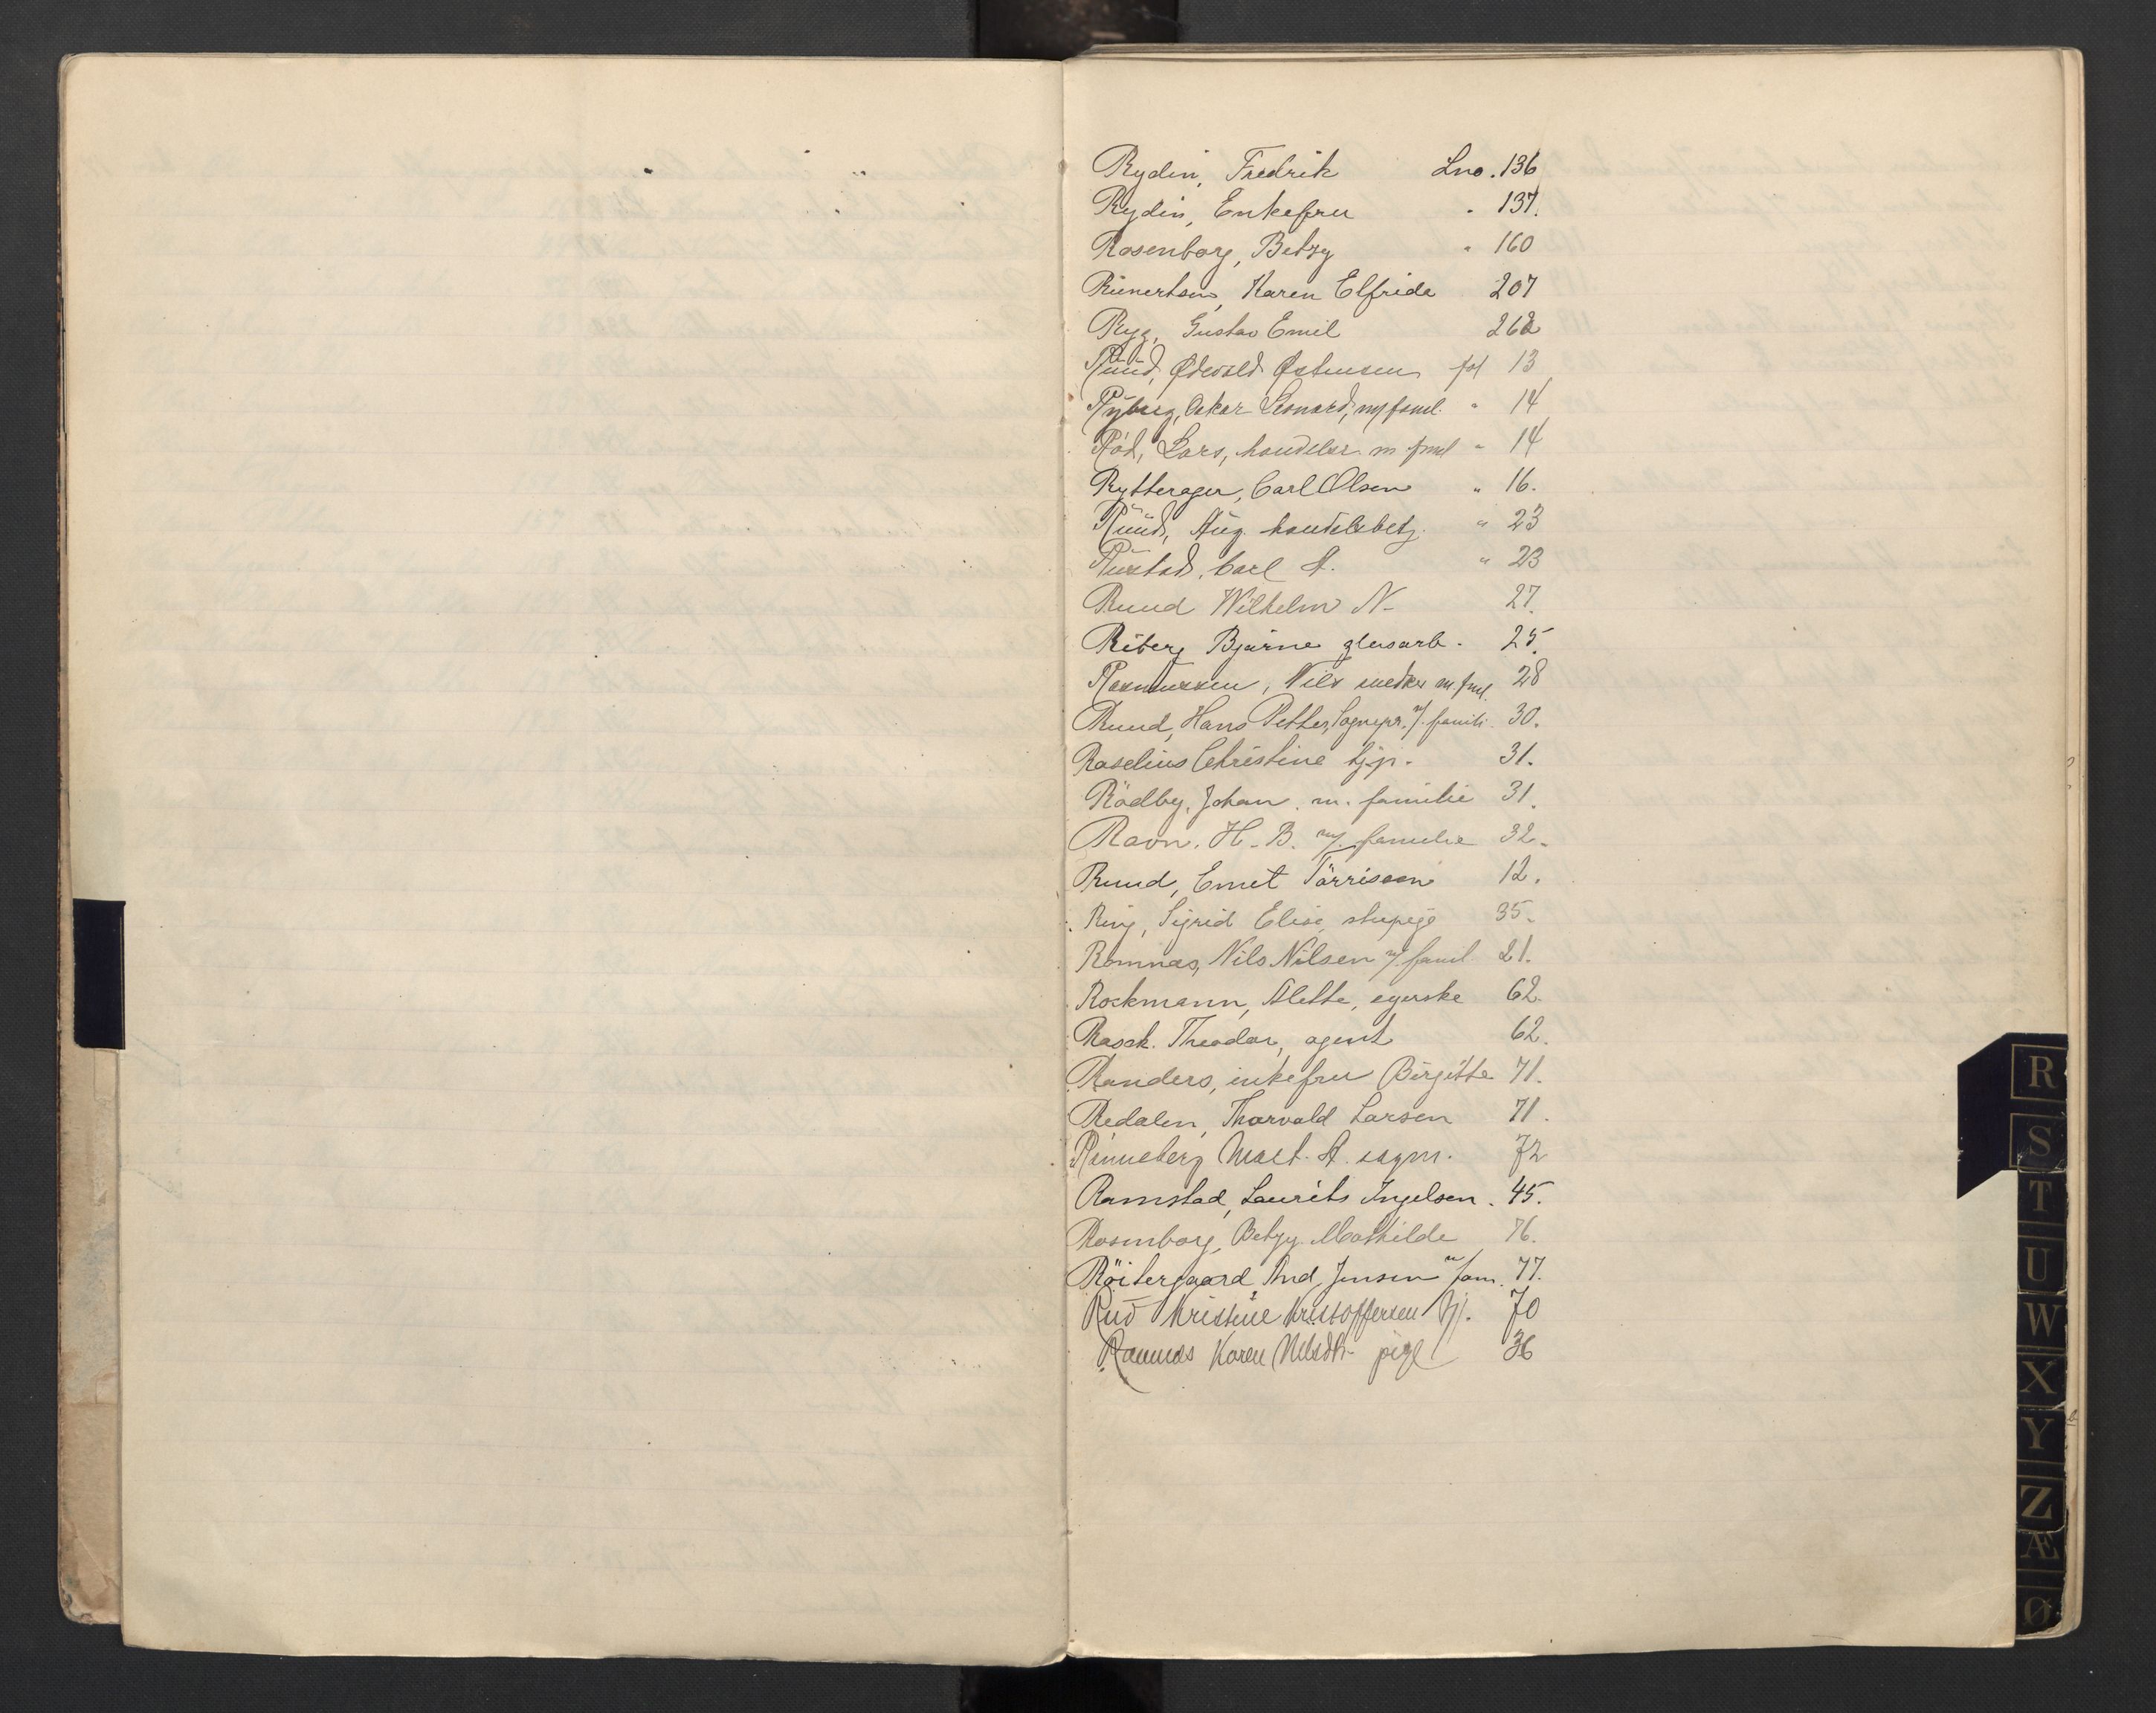 Rydin, Fredrik Lno. 136
Rydin, Enkefru " 137.
Rosenborg, Betzy " 160
Rinertsen, Karen Elfrida 207
Ryg, Gustav Emil 262
Ruud, Ødevald Østensen fol 13
Ryberg, Oskar Leonard, m/famil. " 14
Rød, Lars, handelsr. m fml " 14
Rytterager, Carl Olsen " 16.
Ruud, Aug. handelsbetj. " 23
Rustad, Carl A. " 23
Ruud Wilhelm N- 27.
Riberg Bjarne glasarb. 25.
Rasmussen, Nils snedker m fml. 28
Ruud, Hans Petter, Sognepr. m/. famili. 30.
Roselius Christine tj.p. 31.
Rödby, Johan. m. familie 31.
Ravn, H. B. m/. familie 32.
Ruud, Emet Törrisen 12.
Ring, Sigrid Elise, stupige 35.
Romnæs, Nils Nilsen m/ famil 21.
Rockmann, Alette, syerske 62.
Rasch. Theodor, agent 62.
Randers, enkefru Birgitte 71.
Redalen, Thorvald Larsen 71.
Rinneberg Mart. A. sagm. 72
Ramstad, Laurits Ingelsen. 45.
Rosenborg, Betzy Mathilde 76.
Röitergaard And. Jensen m/fam. 77.
Rud Kristine Kristoffersen tj. 70
Romnæs Karen Nilsdtr pige 36
R
S
T
U
W
X
Y
Z
Æ
Ø